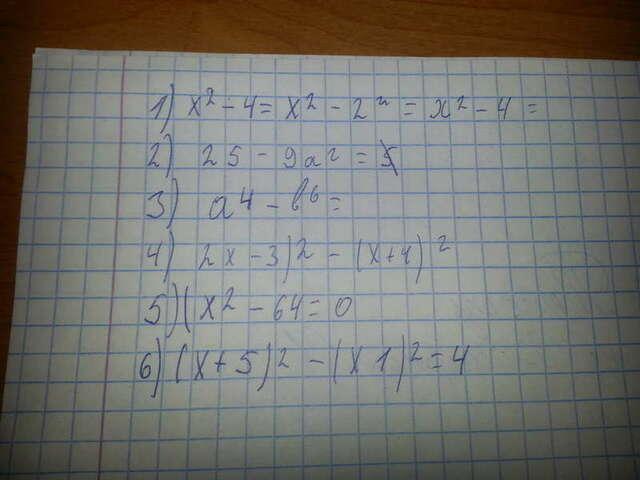 1) x² - 4 = x² - 2² = x² - 4 =
2) 25 - 9a² = 5
3) a⁴ - b⁶ =
4) 2x - 3)² - (x + 4)²
5) (x² - 64 = 0
6) (x + 5)² - (x 1)² = 4